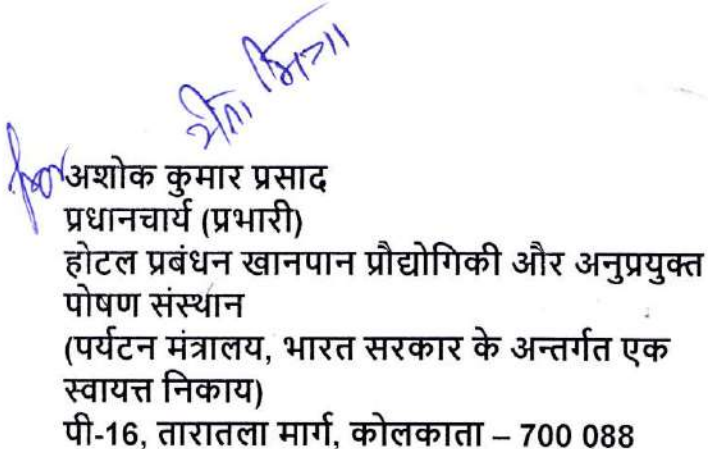 for
अशोक कुमार प्रसाद
प्रधानचार्य (प्रभारी)
होटल प्रबंधन खानपान प्रौद्योगिकी और अनुप्रयुक्त
पोषण संस्थान
(पर्यटन मंत्रालय, भारत सरकार के अन्तर्गत एक
स्वायत्त निकाय)
पी-16, तारातला मार्ग, कोलकाता – 700 088